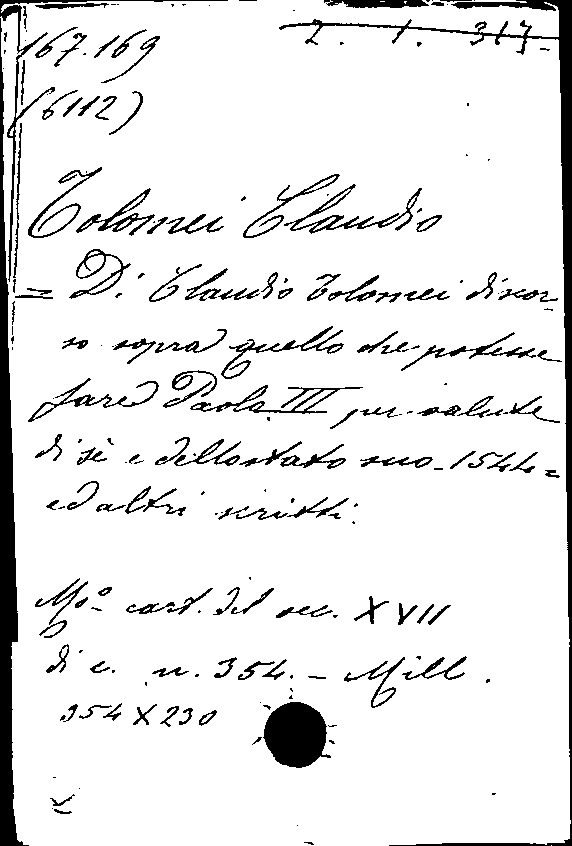 167.169
2. 1. 317-
(6112)
Tolomei Claudio
= Di Claudio Tolomei discor-
so sopra quello che potesse
fare Paolo III per salute
di sè e dello stato suo - 1544 =
ed altri scritti.
Mso cart. del sec. XVII
di c. n. 354. - Mill.
354 X 230